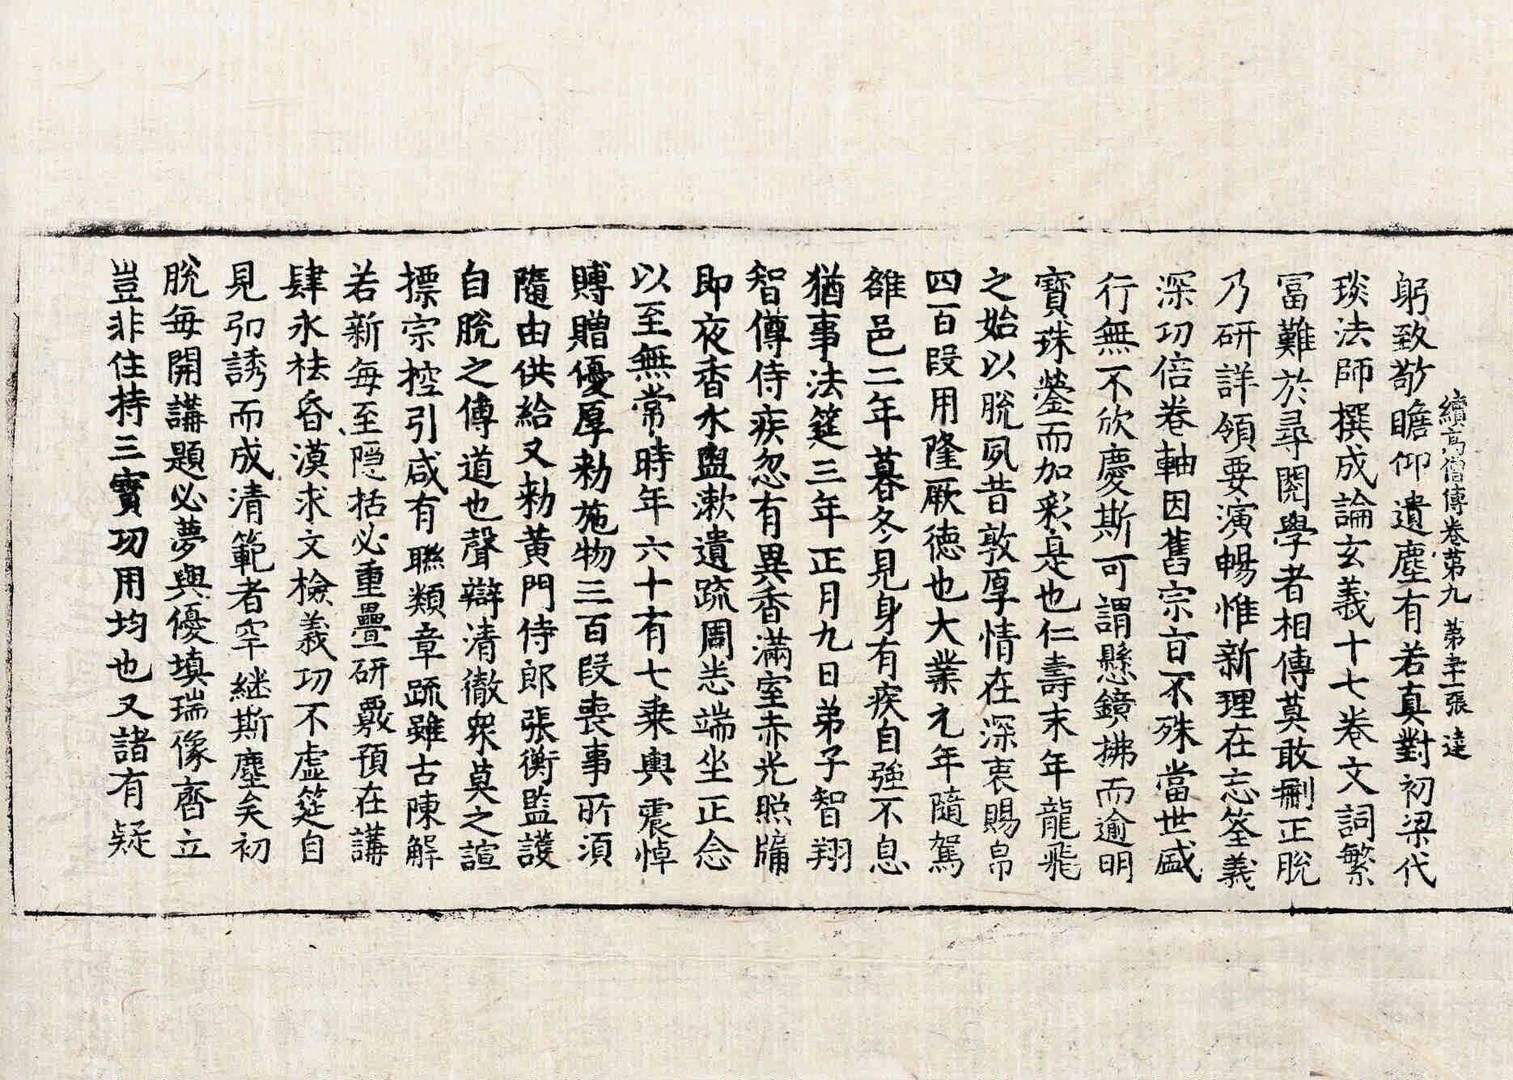 續高僧傳卷第九 第三十一張 達
躬致敬瞻仰遺塵有若真對初梁代
琰法師撰成論玄義十七卷文詞繁
冨難於尋閱學者相傳莫敢刪正脫
乃研詳領要演暢惟新理在忘筌義
深功倍卷軸因舊宗旨不殊當世盛
行無不欣慶斯可謂懸鏡拂而逾明
寶珠蓥而加彩是也仁壽末年龍飛
之始以脫夙昔敦厚情在深衷賜帛
四百段用隆厥德也大業元年隨駕
雒邑二年暮冬見身有疾自強不息
猶事法筵三年正月九日弟子智翔
智傳侍疾忽有異香滿室赤光照牖
即夜香水盥漱遺疏周悉端坐正念
以至無常時年六十有七乗輿震悼
賻贈優厚勑施物三百段喪事所湏
隨由供給又勑黄門侍郎張衡監護
自脫之傳道也聲辯清徹衆莫之諠
摽宗控引咸有聮類章䟽雖古陳解
若新每至隠括必重疊研覈預在講
肆永袪昏漠求文檢義功不虛筵自
見引誘而成清範者罕継斯塵矣初
脫每開講題必夢與優填瑞像齊立
豈非住持三寶功用均也又諸有疑